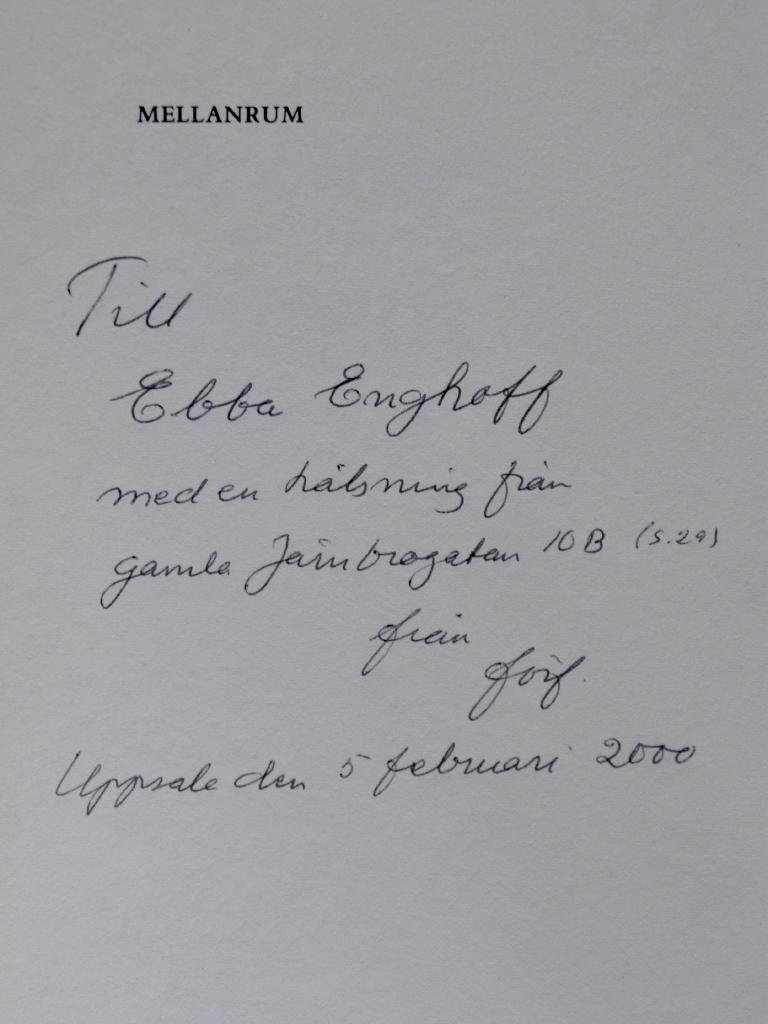 MELLANRUM
Till
Ebba Enghoff
med en hälsning från
gamla Järnbrogatan 10B (s. 29)
från
förf.
Uppsala den 5 februari 2000